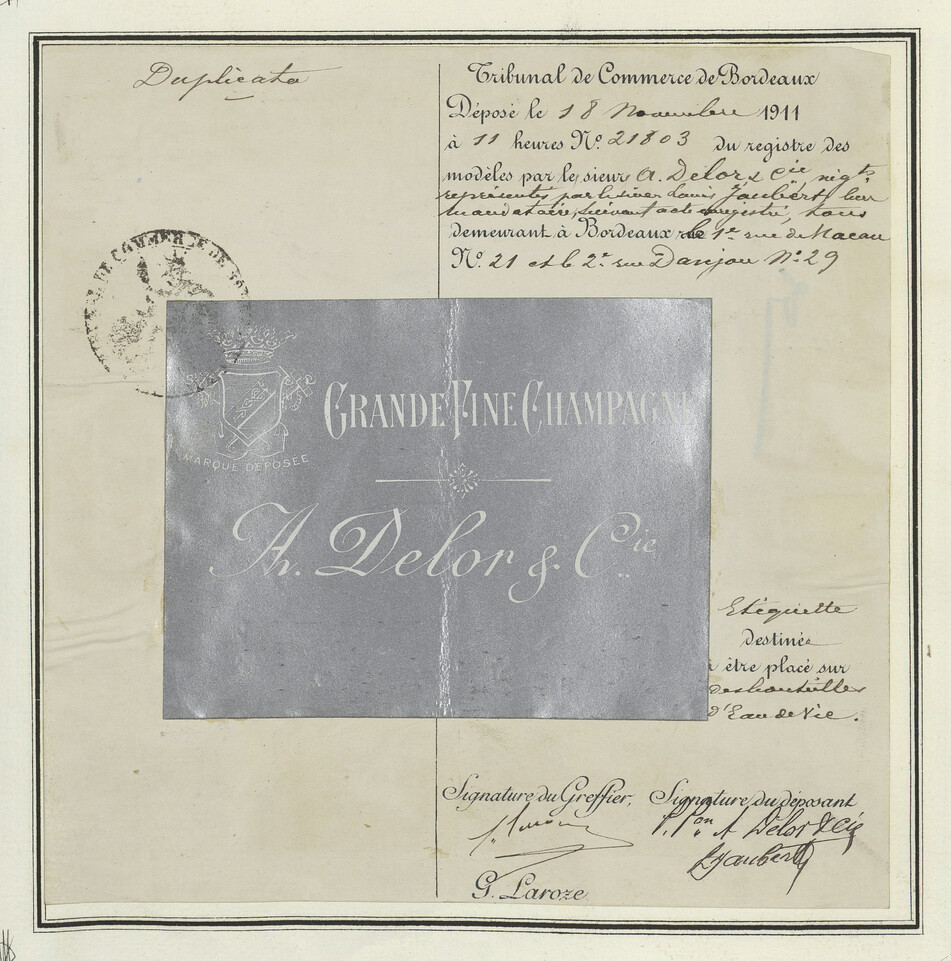 Duplicata
Tribunal de Commerce de Bordeaux
Déposé le 18 Novembre 1911
à 11 heures No. 21803 du registre des
modèles par le sieur A. Delor & Cie négts
représentés par le sieur Louis Jaubert, leur
mandataire, suivant acte enregistré, tous
demeurant à Bordeaux le 1er rue de Macau
No. 21 et le 2e rue Danjou No. 29
GRANDE FINE CHAMPAGNE
MARQUE DÉPOSÉE
A. Delor & Cie
Etiquette
destinée
à être placé sur
des bouteilles
d'Eau de Vie.
Signature du Greffier, Signature du déposant
P. Pon A Delor & Cie
L Jaubert
G. Laroze